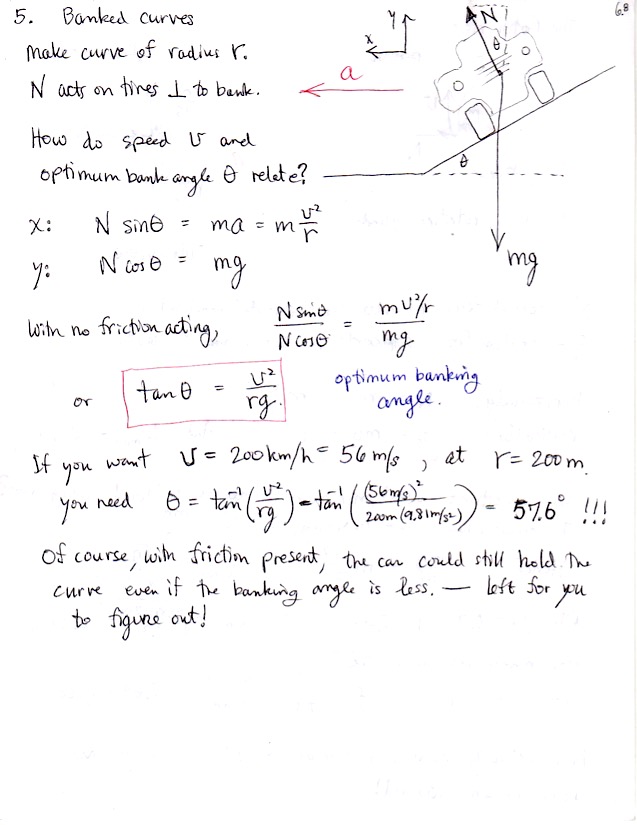 6.8
5. Banked curves
Make curve of radius r.
N acts on tires ⊥ to bank.
How do speed v and
optimum bank angle θ relate?
y
x
a
N
θ
θ
mg
x: N sinθ = ma = m v²/r
y: N cosθ = mg
With no friction acting, N sinθ / N cosθ = mv²/r / mg
or tan θ = v²/rg. optimum banking
angle.
If you want v = 200 km/h = 56 m/s, at r = 200 m.
you need θ = tan⁻¹(v²/rg) = tan⁻¹((56 m/s)²/200m (9.81 m/s²)) = 57.6° !!!
Of course, with friction present, the car could still hold the
curve even if the banking angle is less. — left for you
to figure out!